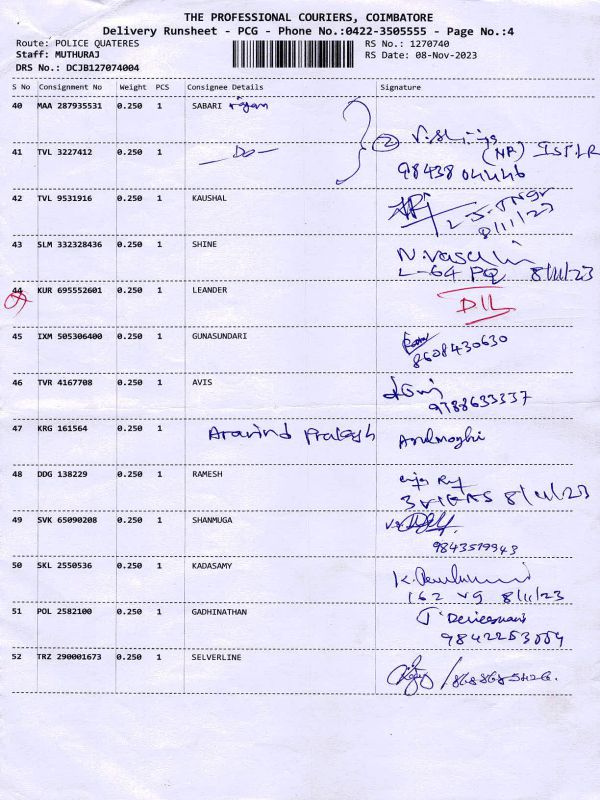 THE PROFESSIONAL COURIERS, COIMBATORE
Delivery Runsheet - PCG - Phone No.:0422-3505555 - Page No.:4
Route: POLICE QUATERES RS No.: 1270740
Staff: MUTHURAJ RS Date: 08-Nov-2023
DRS No.: DCJB127074004
S No Consignment No Weight PCS Consignee Details Signature
40 MAA 287935531 0.250 1 SABARI rajan
41 TVL 3227412 0.250 1 —Do— 2 (NR)
98438 04446
42 TVL 9531916 0.250 1 KAUSHAL
8/11/23
43 SLM 332328436 0.250 1 SHINE N.Vasuki
L-64 PQ 8/11/23
44 KUR 695552601 0.250 1 LEANDER D/L
45 IXM 505306400 0.250 1 GUNASUNDARI
8608430630
46 TVR 4167708 0.250 1 AVIS
9788633337
47 KRG 161564 Aravind Prakash
0.250 1
48 DDG 138229 0.250 1 RAMESH
8/11/23
49 SVK 65090208 0.250 1 SHANMUGA
9843519943
50 SKL 2550536 0.250 1 KADASAMY
162 V9 8/11/23
51 POL 2582100 0.250 1 GADHINATHAN
9842253009
52 TRZ 290001673 0.250 1 SELVERLINE
/8688685426.